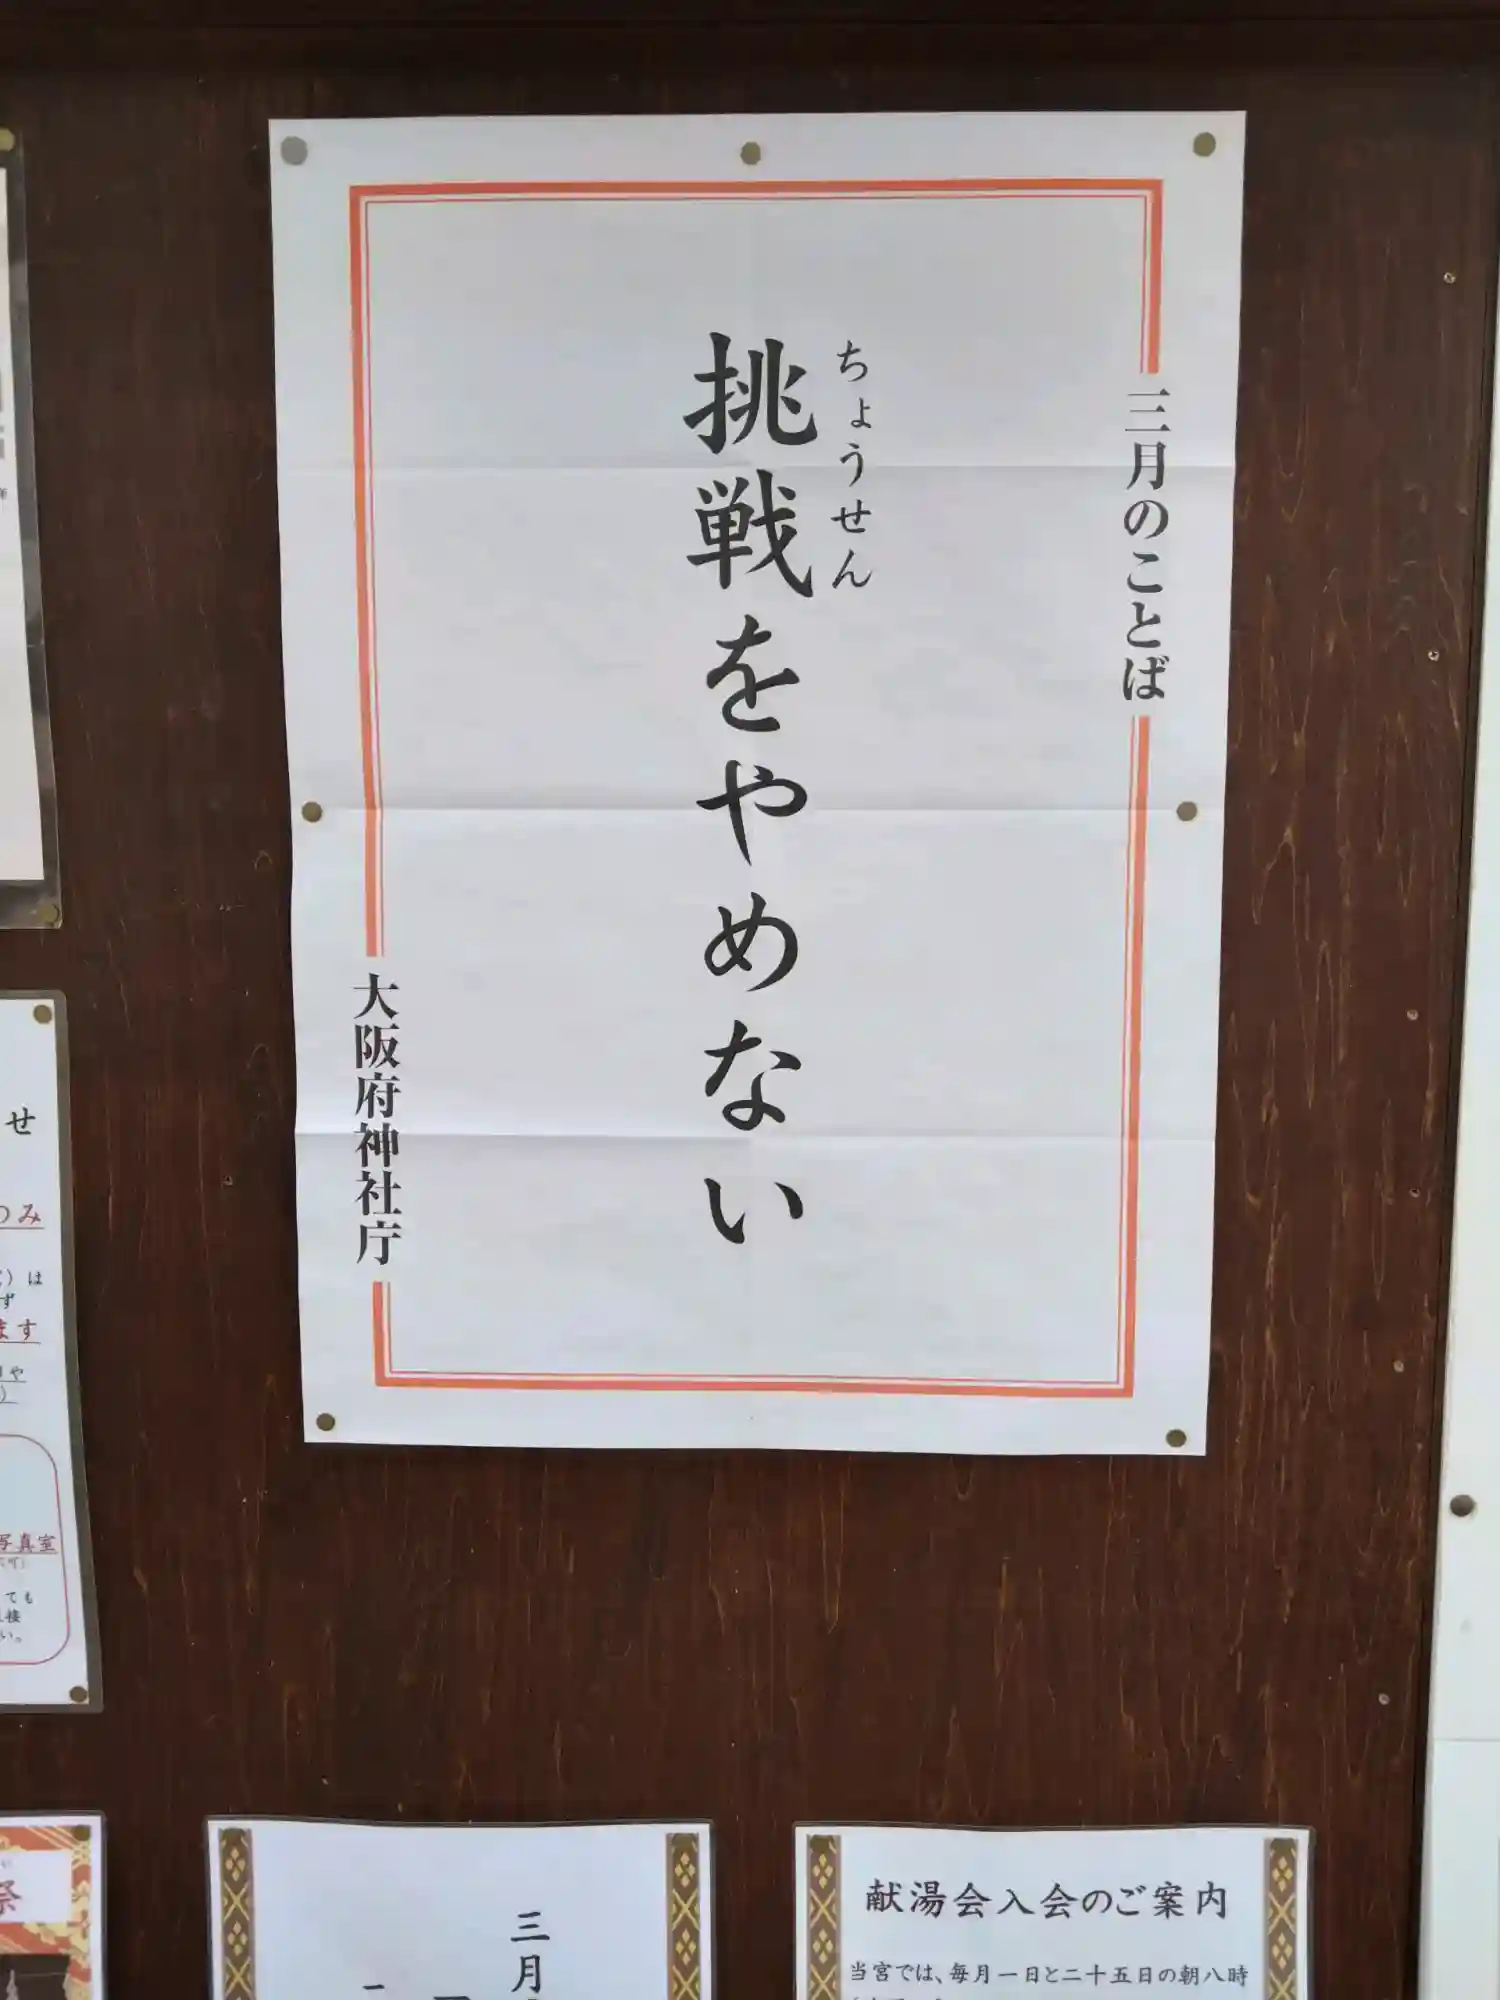 三月のことば
ちょうせん
挑戦をやめない
大阪府神社庁
せ
つみ
は
ず
ます
や
写真室
ても
接
い。
祭
三月
献湯会入会のご案内
当宮では、毎月一日と二十五日の朝八時